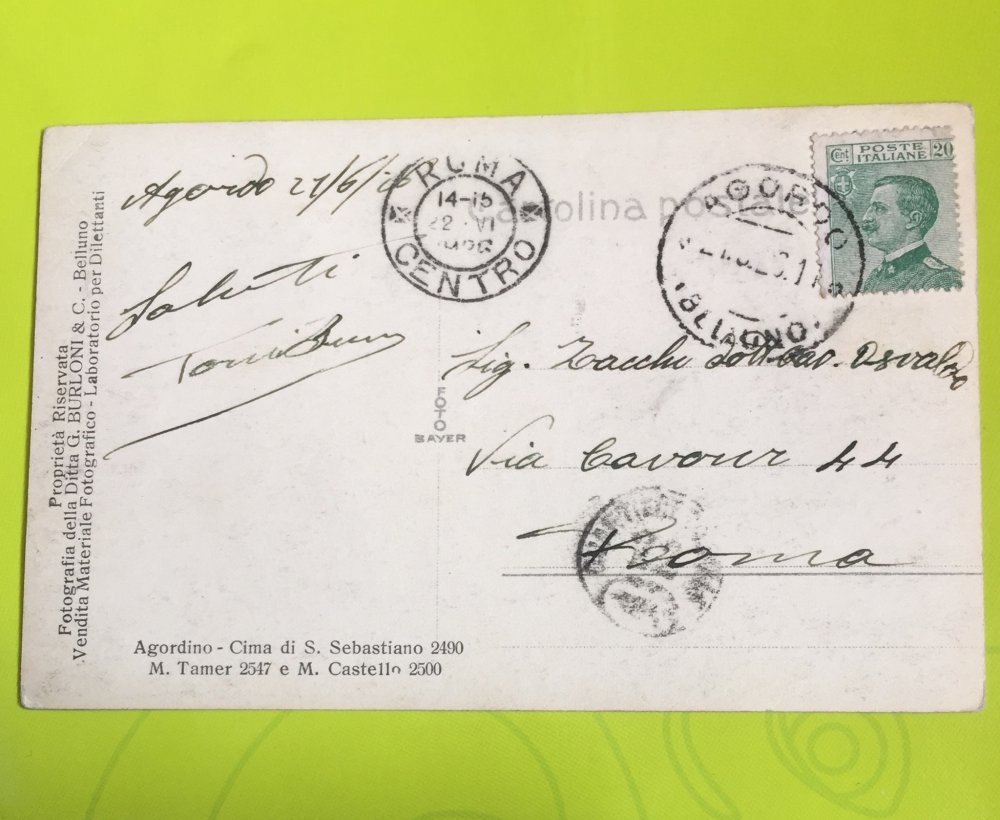 Agordo 21/6/26
Saluti
ROMA
14-15
22 VI
1926
CENTRO
Cartolina postale
AGORDO
(BELLUNO)
Cent POSTE ITALIANE 20
Sig. Zacchi Dott. Cav. Osvaldo
Via Cavour 44
Roma
FOTO
BAYER
Proprietà Riservata
Fotografia della Ditta G. BURLONI & C. - Belluno
Vendita Materiale Fotografico - Laboratorio per Dilettanti
Agordino - Cima di S. Sebastiano 2490
M. Tamer 2547 e M. Castello 2500